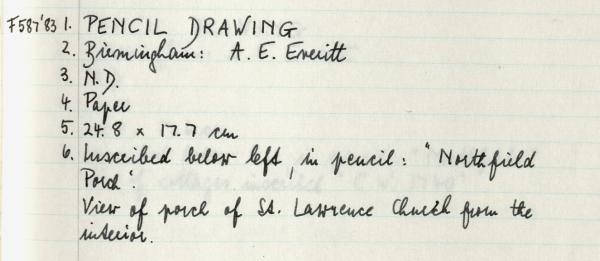 F587'83 1. PENCIL DRAWING
2. Birmingham: A. E. Everitt
3. N.D.
4. Paper
5. 24.8 x 17.7 cm
6. Inscribed below left, in pencil: "Northfield
Porch".
View of porch of St. Lawrence Church from the
interior.